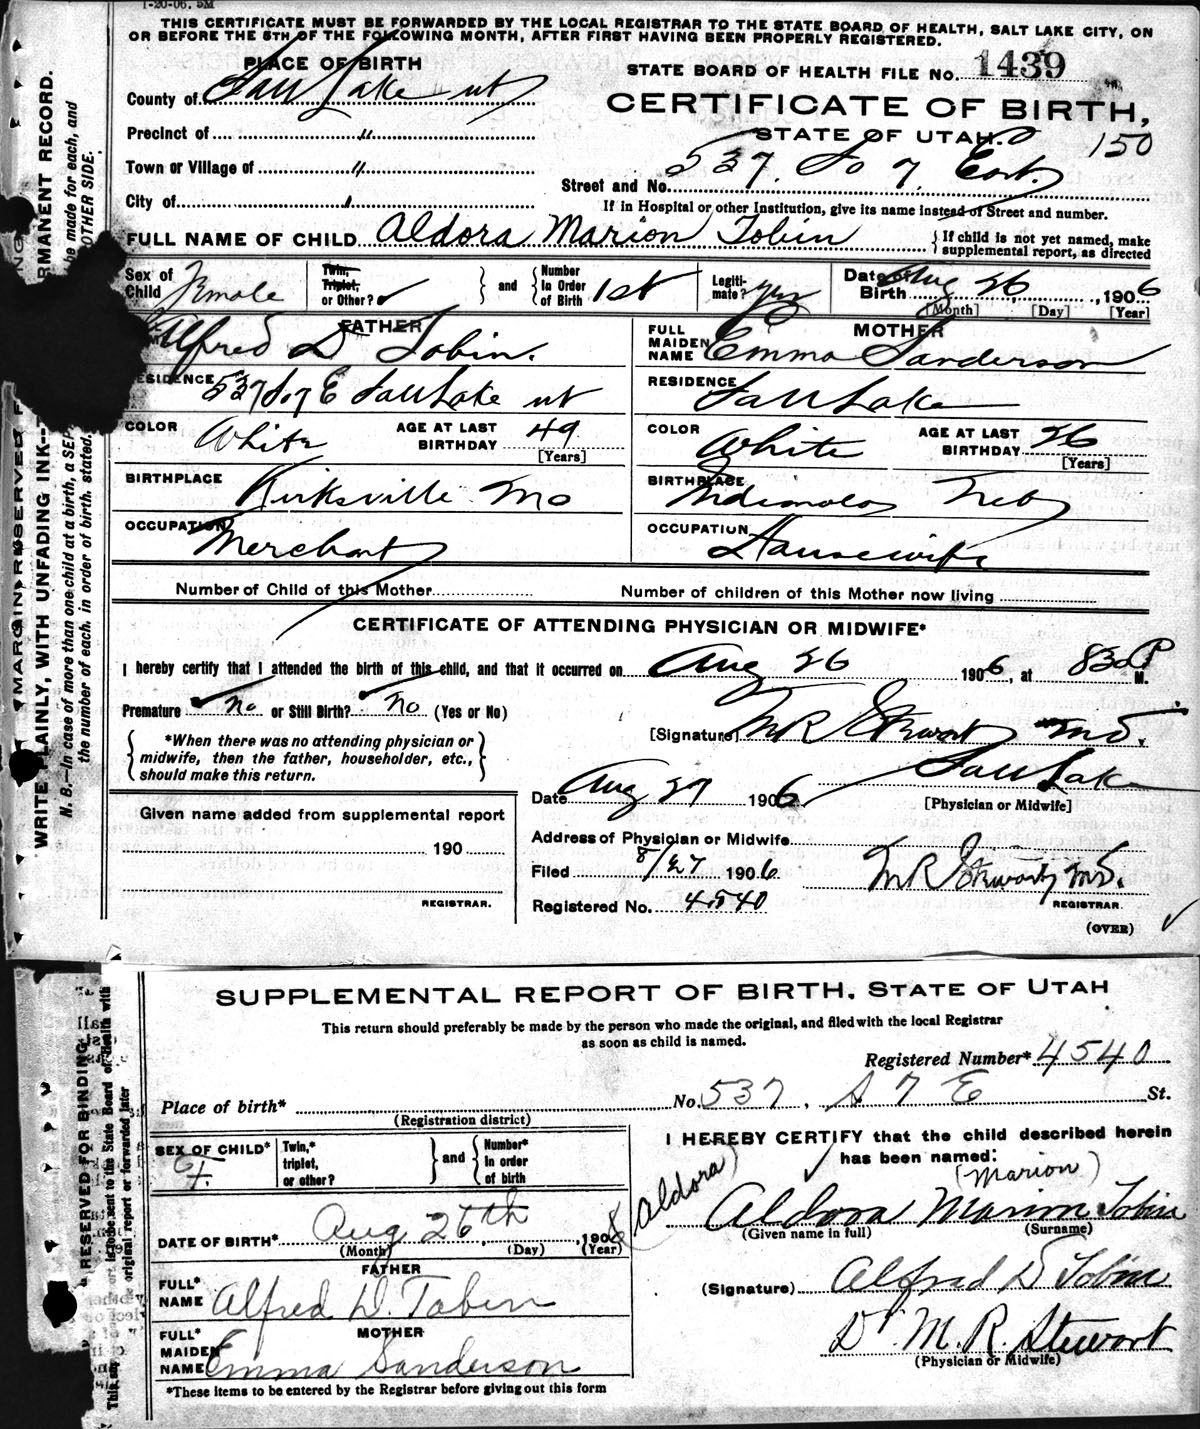 1-20-06. 5M
THIS CERTIFICATE MUST BE FORWARDED BY THE LOCAL REGISTRAR TO THE STATE BOARD OF HEALTH, SALT LAKE CITY, ON
OR BEFORE THE 5TH OF THE FOLLOWING MONTH, AFTER FIRST HAVING BEEN PROPERLY REGISTERED.
PLACE OF BIRTH
STATE BOARD OF HEALTH FILE No. 1439
County of Salt Lake ut
CERTIFICATE OF BIRTH,
Precinct of "
STATE OF UTAH.
150
Town or Village of "
Street and No. 537. So 7. East.
City of
If in Hospital or other Institution, give its name instead of Street and number.
FULL NAME OF CHILD Aldora Marion Tobin
{ If child is not yet named, make
supplemental report, as directed
Sex of Child Female
Twin, Triplet, or Other?
and
Number In Order of Birth 1st
Legitimate? yes
Date of Birth Aug 26, 1906
[Month] [Day] [Year]
FATHER
Alfred D Tobin.
RESIDENCE 537 So 7 E Salt Lake ut
COLOR White
AGE AT LAST BIRTHDAY 49
[Years]
BIRTHPLACE Kirksville Mo
OCCUPATION Merchant
MOTHER
FULL MAIDEN NAME Emma Sanderson
RESIDENCE Salt Lake
COLOR White
AGE AT LAST BIRTHDAY 26
[Years]
BIRTHPLACE Indianola Neb
OCCUPATION Housewife
Number of Child of this Mother
Number of children of this Mother now living
CERTIFICATE OF ATTENDING PHYSICIAN OR MIDWIFE*
I hereby certify that I attended the birth of this child, and that it occurred on Aug 26 1906, at 830 P M.
Premature No or Still Birth? No (Yes or No)
[Signature] M R Stewart M.D.
{ *When there was no attending physician or
midwife, then the father, householder, etc.,
should make this return. }
Salt Lake
[Physician or Midwife]
Date Aug 27 1906
Given name added from supplemental report
190
REGISTRAR.
Address of Physician or Midwife
Filed 8/27 1906
M R Stewart, M.D.
REGISTRAR.
Registered No. 4540
(OVER)
WRITE PLAINLY, WITH UNFADING INK--
RMANENT RECORD.
MARGIN RESERVED F
N. B.—In case of more than one child at a birth, a SEP
be made for each, and
the number of each, in order of birth, stated.
OTHER SIDE.
SUPPLEMENTAL REPORT OF BIRTH, STATE OF UTAH
This return should preferably be made by the person who made the original, and filed with the local Registrar
as soon as child is named.
Registered Number* 4540
Place of birth*
No. 537, S 7 E St.
(Registration district)
SEX OF CHILD* F.
Twin,* triplet, or other?
and
Number* in order of birth
I HEREBY CERTIFY that the child described herein
has been named:
(Aldora)
(Marion)
Aldora Marion Tobin
(Given name in full) (Surname)
DATE OF BIRTH* Aug. 26th, 1906
(Month) (Day) (Year)
FATHER
FULL* NAME Alfred D. Tobin
(Signature) Alfred D Tobin
MOTHER
FULL* MAIDEN NAME Emma Sanderson
Dr. M. R. Stewart
(Physician or Midwife)
*These items to be entered by the Registrar before giving out this form
RESERVED FOR BINDING
is to be sent to the State Board of Health with
original report or forwarded later